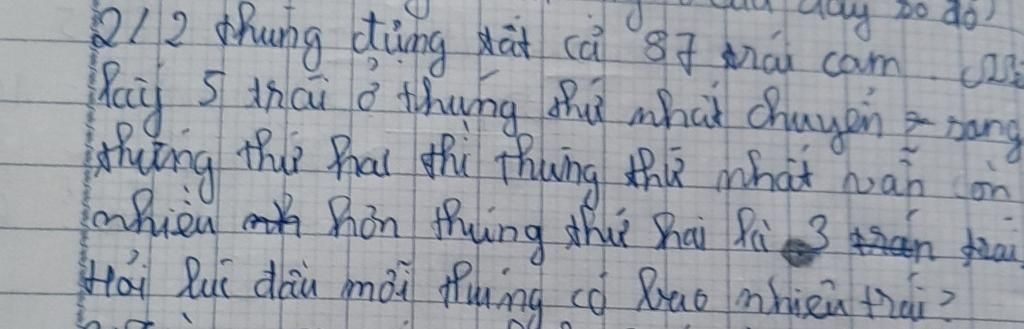 dãy số đó
2/ 2 thùng đựng tất cả 87 trái cam
lấy 5 trái ở thùng thứ nhất chuyển sang
thùng thứ hai thì thùng thứ nhất vẫn còn
nhiều hơn thùng thứ hai là 3 trái
Hỏi lúc đầu mỗi thùng có bao nhiêu trái?